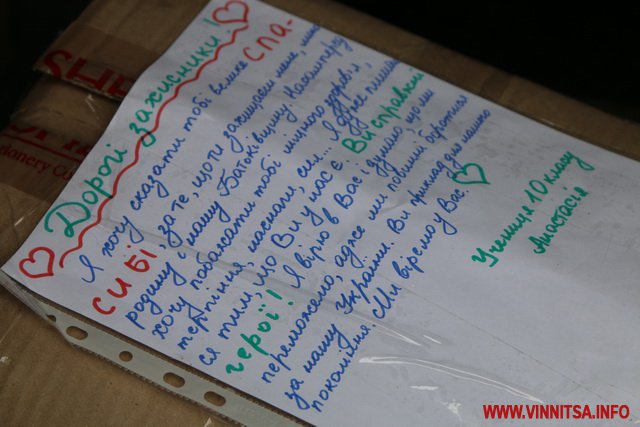 Дорогі захисники!
Я хочу сказати тобі велике СПА-
СИБІ, за те, що ти захищаєш мене, мою
родину і нашу Батьківщину. Насамперед
хочу побажати тобі міцного здоров'я,
терпіння, наснаги, сил... Я дуже пишаю-
ся тим, що Ви у нас є. Ви справжні
герої! Я вірю в Вас і думаю, що ми
переможемо, адже ми повинні боротися
за нашу Україну. Ви приклад для нашого
покоління. Ми віримо у Вас.
Учениця 10 класу
Анастасія
WWW.VINNITSA.INFO